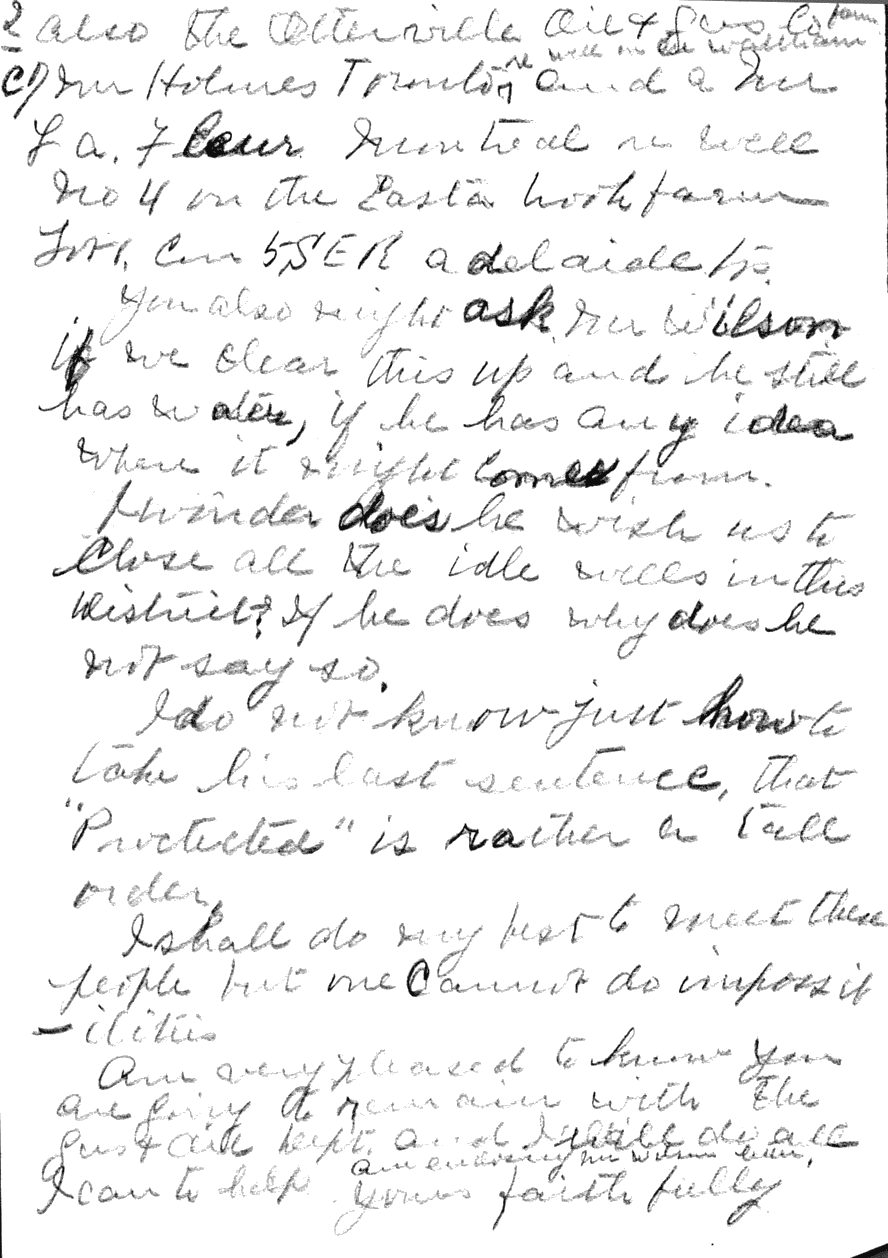 2 also the Otterville Oil & Gas Co farm
re well on the Waltham
C7 Mr Holmes Toronto, and a Mr
La. Fleur Montreal re well
No 4 on the Easta brook farm
Lot 1, Con 5 S E R adelaide tp.
You also might ask Mr Wilson
if we clear this up and he still
has water, if he has any idea
where it might comes from.
I wonder does he wish us to
close all the idle wells in this
District? If he does why does he
not say so.
I do not know just how to
take his last sentence, that
"Protected" is rather a tall
order,
I shall do my best to meet these
people but one cannot do impossib
- ilities
Am very pleased to know you
are going to remain with the
Gas & Oil dept. and I will do all
am enclosing Mr Wilsons letter,
I can to help Yours faithfully